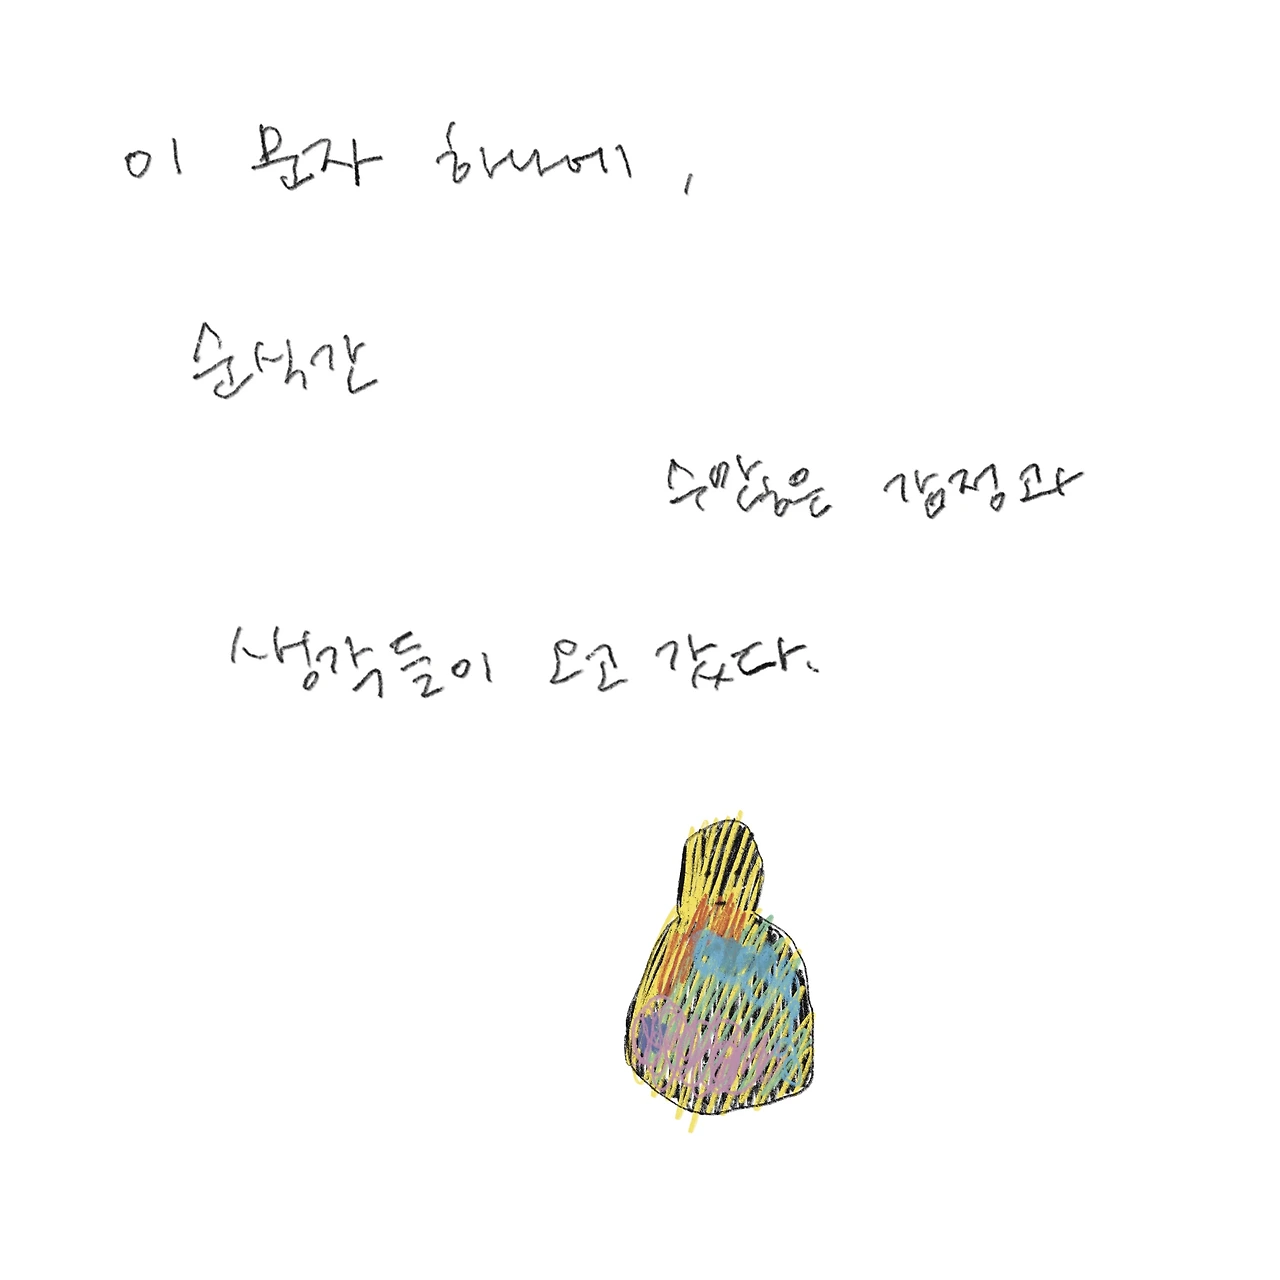 이 문자 하나에,
순식간
수많은 감정과
생각들이 오고 갔다.